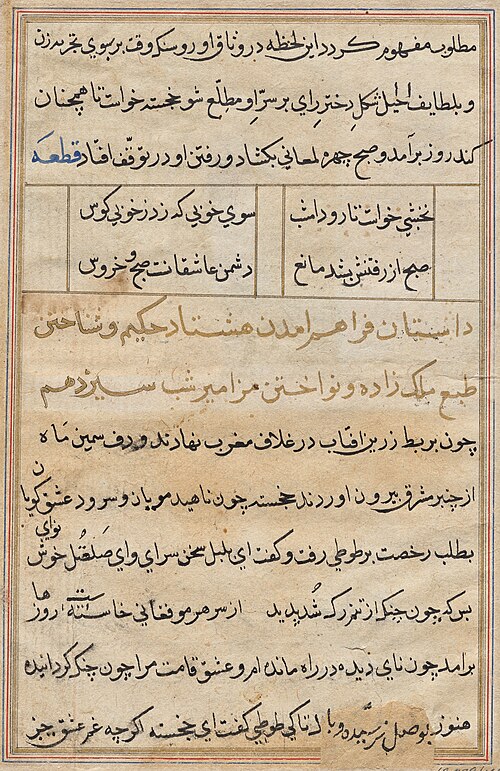 مطلوبه مفهوم کردد این لحظه در وثاق او رو سکه وقت بر سوی تجربه زن
و بلطایف الحیل شکل دختر رای بر سر او مطلع شو خجسته خواست تا همچنان
کند روز برآمد و صبح چهره لمعانی بکشاد و رفتن او در توقف افتاد قطعه
نخشبی خواست تا رود امشب سوی خوبی که زد ز خوبی کوس
صبح از رفتنش بشد مانع دشمن عاشقانست صبح و خروس
داستان فراهم امدن هشتاد حکیم و شناختن
طبع ملک زاده و نواختن مزامیر شب سیزدهم
چون بربط زرین افتاب در غلاف مغرب نهادند و دف سمین ماه
از چنبر مشرق بیرون اوردند خجسته چون ناهید مویان و سرود عشق کویان
بطلب رخصت بر طوطی رفت و کفت ای بلبل سخن سرای وای صلصل خوش نوای
بس که چون چنک از تن رک شد پدید از سر هر مو فغانی خاستست روزها
برامد چون نای دیده در راه مانده ام و عشق قامت مرا چون چنک کردانیده
هنوز بوصل نرسیده و با له ناکی طوطی کفت ای خجسته اکرچه غم عشق چیز